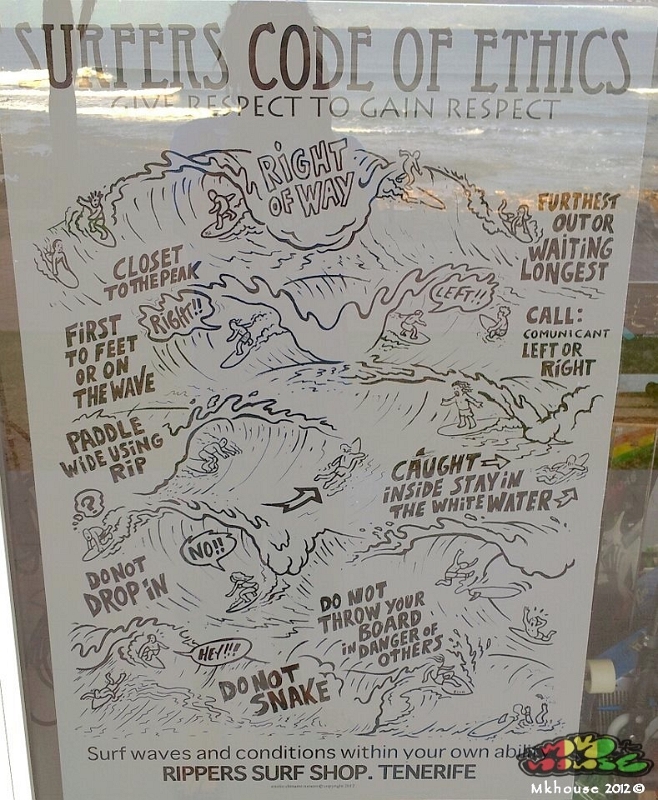 SURFERS CODE OF ETHICS
GIVE RESPECT TO GAIN RESPECT
RiGHT
OF WAY
FURTHEST
OUT OR
WAITING
LONGEST
CLOSET
TO THE PEAK
RiGHT!!
LEFT!!
FiRST
TO FEET
OR ON
THE WAVE
CALL:
COMUNICANT
LEFT OR
RiGHT
PADDLE
WIDE USING
RiP
CAUGHT
iNSIDE STAY iN
THE WHITE WATER
?
NO!!
DO NOT
DROP iN
DO NOT
THROW YOUR
BOARD
iN DANGER OF
OTHERS
HEY!!!
DO NOT
SNAKE
Surf waves and conditions within your own
RIPPERS SURF SHOP. TENERIFE
Mkhouse 2012©